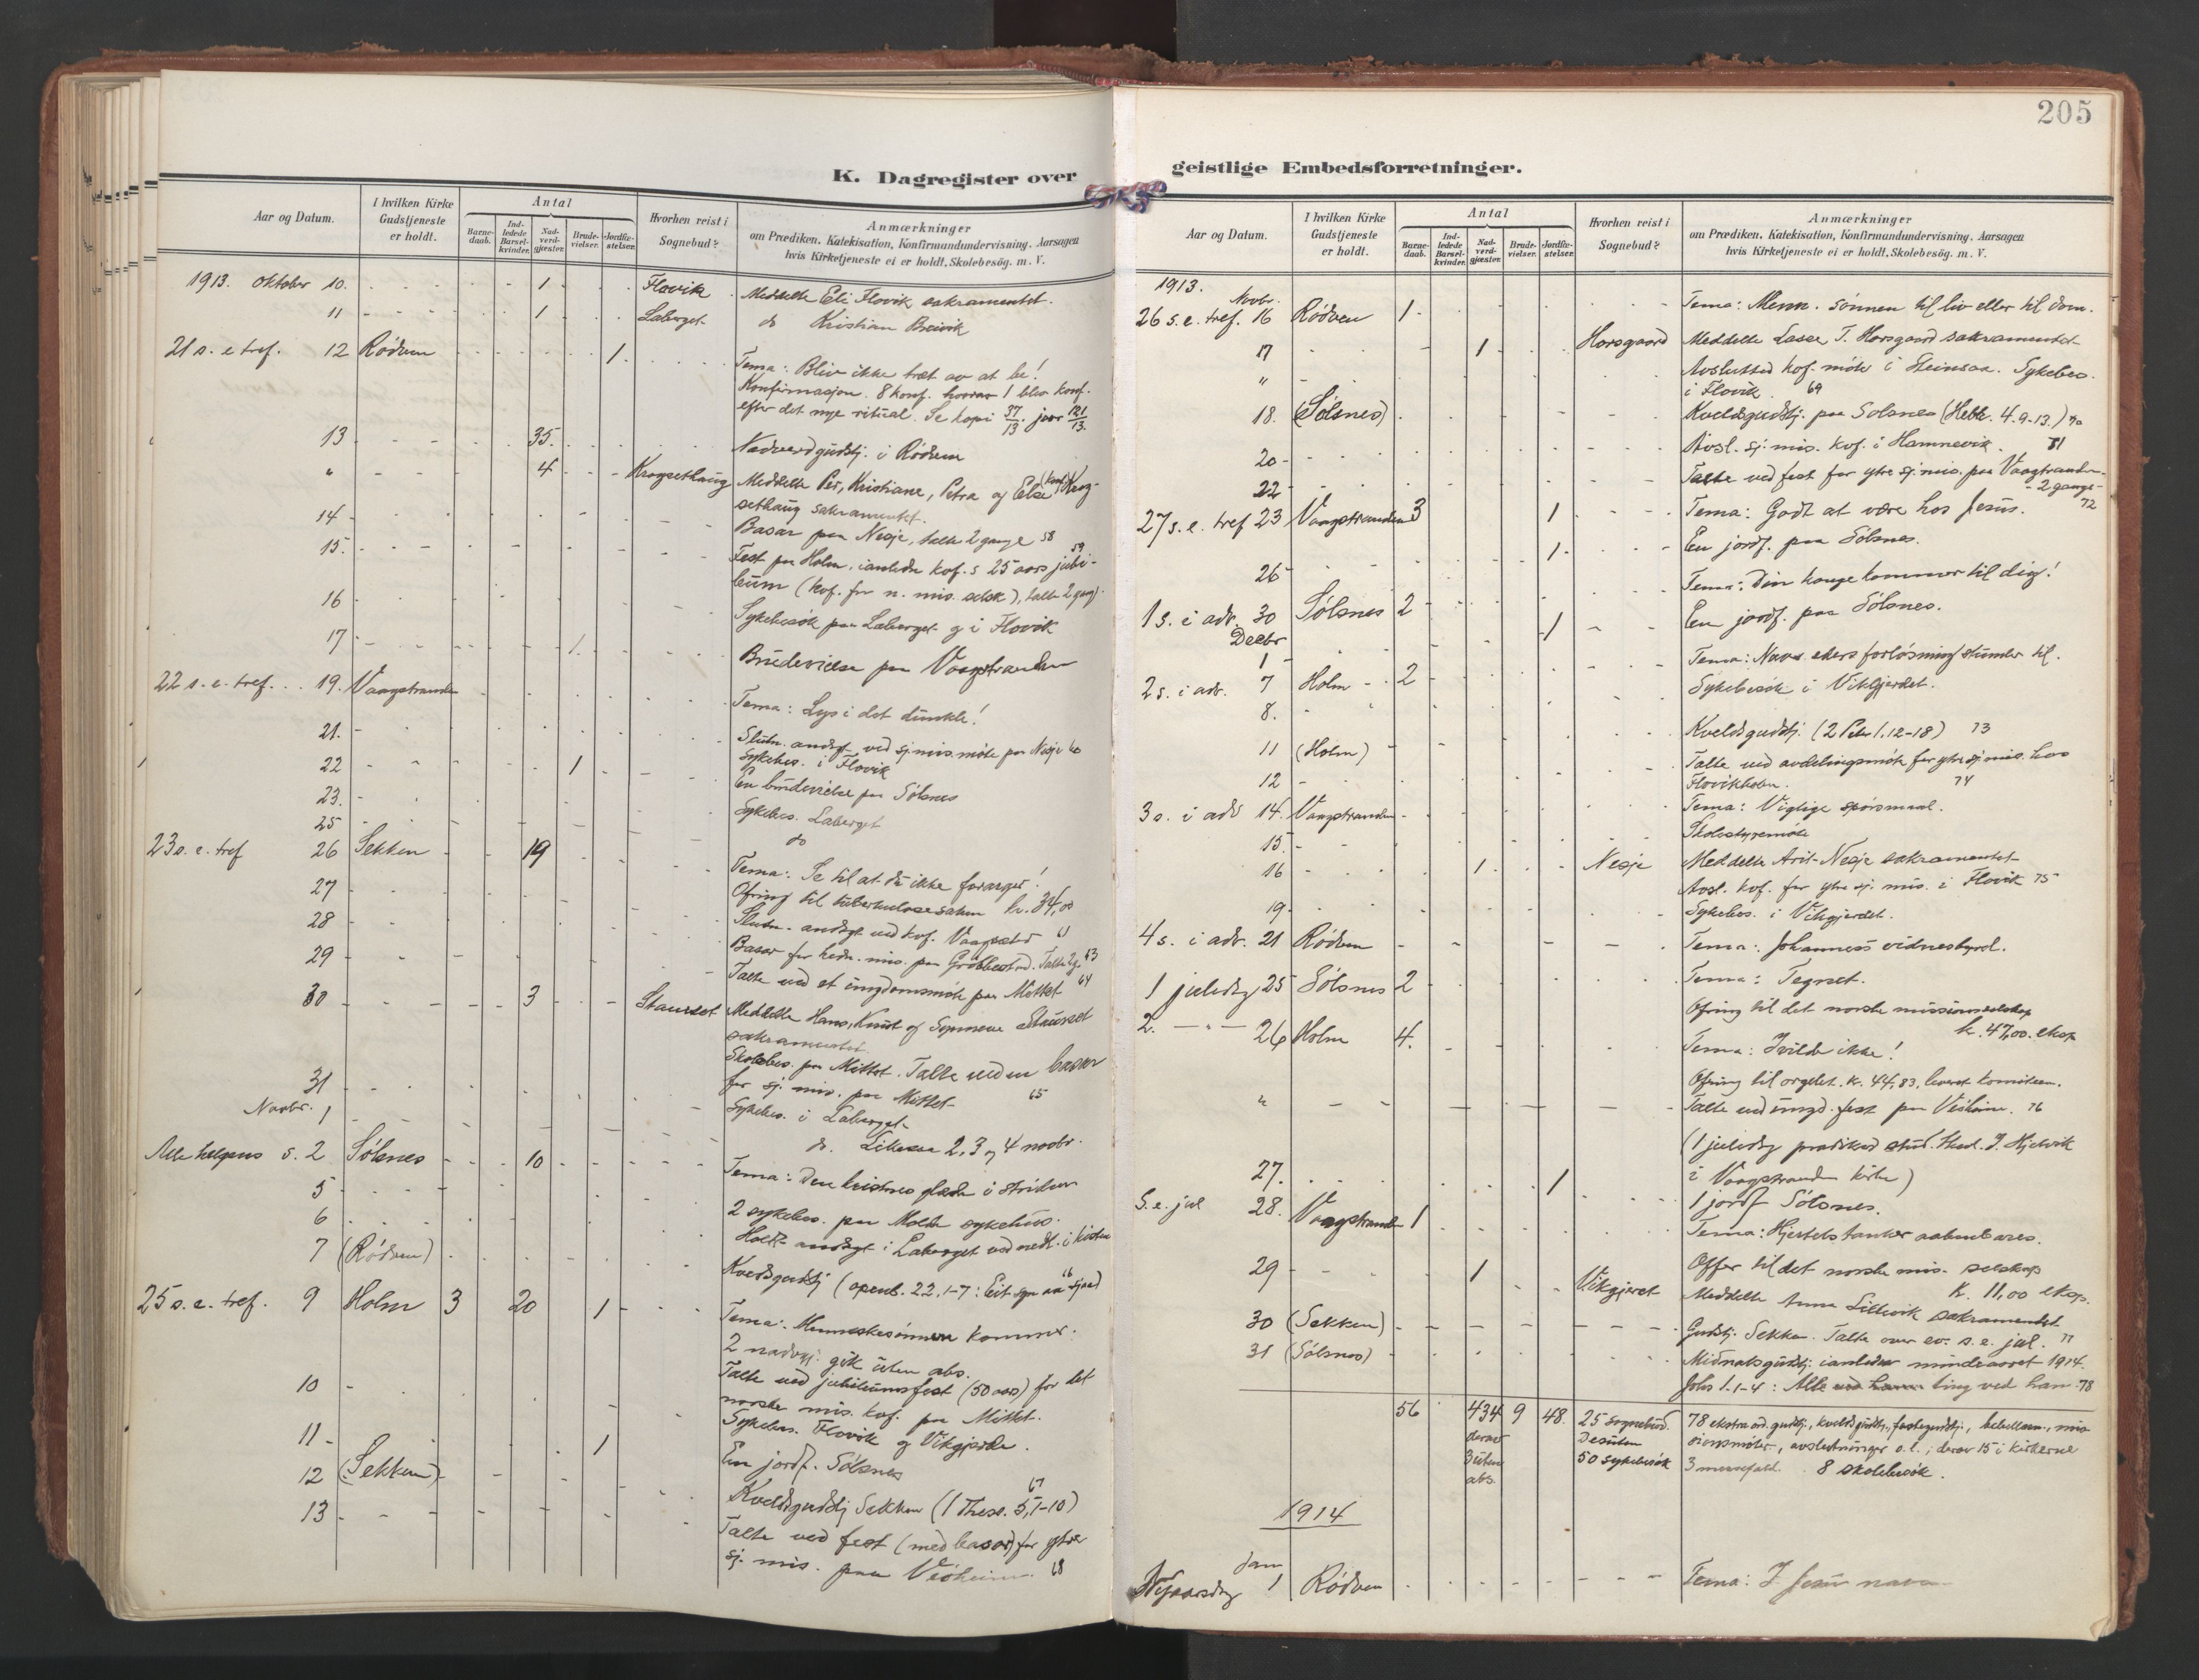 205
K. Dagregister over
Aar og Datum.
I hvilken Kirke Gudstjeneste er holdt.
Antal
Barnedaab.
Indledede Barselkvinder.
Nadverdgjæster.
Brudevielser.
Jordfæstelser.
Hvorhen reist i Sognebud?
Anmærkninger
om Prædiken, Katekisation, Konfirmandundervisning, Aarsagen
hvis Kirketjeneste ei er holdt, Skolebesøg. m. V.
1913. Oktober 10. 1 Flovik Meddelte Eli Flovik sakramentet.
11 1 Laberget do Kristian Breivik
21 s. e. tref. 12 Rødven 1. Tema: Bliv ikke træt av at be!
Konfirmasjon. 8 konf. hvorav 1 blev konf.
efter det nye ritual. Se kopi 37/13. jour 121/13.
13 35. Nadverdgudstj. i Rødven
" 4 Krogsethaug Meddelte Per, Kristiane, Petra og Else Krog-
sethaug sakramentet.
14 Basar paa Nesje, talte 2 gange 58
15. Fest paa Holm, i anledn kof.s 25 aars jubi- 59
leum (kof. for n. mis. selsk), talte 2 gang.
16 Sykebesøk paa Laberget og i Flovik
17 1. Brudevielse paa Vaagstranden
22 s. e. tref. 19. Vaagstranden Tema: Lys i det dunkle!
21. Slutn. andagt ved sj. mis. møte paa Nesje 60
22 1 Sykebes. i Flovik
En brudevielse paa Sølsnes
23. Sykebes. Laberget
25 do
23 s. e. tref 26 Sekken 19 Tema: Se til at du ikke forarges!
Ofring til tuberkulosesaken kr. 34,00
27 Slutn. andagt ved kof. Vaagsæter 61
28 Basar for hedn. mis. paa Grøbbestad. Talte 2 g. 63
29 Talte ved et ungdomsmøte paa Mittet 64
30 3 Staurset Meddelte Hans, Knut og Synneve Staurset
sakramentet.
Skolebes. paa Mittet. Talte ved en basar
31 for sj. mis. paa Mittet 65
Novbr. 1 Sykebes. i Laberget
do. 2, 3 og 4 novbr.
Alle helgens s. 2 Sølsnes 10 Tema: Den kristnes glæde i striden
5 2 sykebes. paa Molde sykehus.
6 Holdt andagt i Laberget ved nedl. i kisten
7 (Rødven) Kveldsgudstj (openb. 22, 1-7: Eit syn 66
25 s. e. tref. 9 Holm 3 20 1 Tema: Menneskesønnen kommer.
2 nadvgj. gik uten abs.
10 Talte ved jubileumsfest (50 aars) for det
norske mis. kof. paa Mittet.
Sykebes. Flovik og Vikgjerde.
11 1 En jordf. Sølsnes
12 (Sekken) Kveldsgudstj Sekken (1 Thess. 5, 1-10) 67
13 Talte ved fest (med basar) for ytre
sj. mis. paa Visheim. 68
geistlige Embedsforretninger.
Aar og Datum.
I hvilken Kirke Gudstjeneste er holdt.
Antal
Barnedaab.
Indledede Barselkvinder.
Nadverdgjæster.
Brudevielser.
Jordfæstelser.
Hvorhen reist i Sognebud?
Anmærkninger
om Prædiken, Katekisation, Konfirmandundervisning, Aarsagen
hvis Kirketjeneste ei er holdt, Skolebesøg. m. V.
1913.
Novbr.
26 s. e. tref. 16 Rødven 1. Tema: Menn. sønnen til liv eller til dom.
17 1 Horsgaard Meddelte Lasse T. Horsgaard sakramentet
" Avslutted kof. møte i Steinsaa. Sykebes.
i Flovik 69
18. (Sølsnes) Kveldsgudstj. paa Sølsnes (Hebr. 4. 9-13.) 70
20 Avsl. sj. mis. kof. i Hamnevik. 71
22 Talte ved fest for ytre sj. mis. paa Vaagstranden
- 2 gange - 72
27 s. e. tref 23 Vaagstranden 3 1 Tema: Godt at være hos Jesus.
26 1. En jordf. paa Sølsnes.
1 s. i adv. 30 Sølsnes 2 Tema: Din konge kommer til dig!
Decbr
1 1 En jordf. paa Sølsnes.
2 s. i adv. 7 Holm 2 Tema: Naar eders forløsning stunder til.
8. Sykebesøk i Vikgjerdet.
11 (Holm) Kveldsgudstj. (2 Petr 1. 12-18) 73
12 Talte ved avdelingsmøte for ytre sj. mis. hos
Flovikholm. 74
3 s. i adv 14. Vaagstranden Tema: Vigtige spørsmaal.
15. Skolestyremøte
16 1. Nesje Meddelte Arit Nesje sakramentet
Avsl. kof. for ytre sj. mis. i Flovik 75
19. Sykebes. i Vikgjerdet.
4 s. i adv. 21 Rødven Tema: Johannes's vidnesbyrd.
1 juledag 25 Sølsnes 2 Tema: Tegnet.
Ofring til det norske missionsselskap
k. 47,00. eksp
2. — " — 26 Holm 4. Tema: Ikke!
Ofring til orgelet. k. 44,83, leveret komiteen.
" Talte ved ungd. fest paa Visheim. 76
(1 juledag prædiked stud. theol. J. Hjelvik
i Vaagstranden kirke)
27. 1 1 jordf Sølsnes.
S. e. jul 28. Vaagstranden 1 Tema: Hjertets tanker aabenbares.
Offer til det norske mis. selskap
K. 11,00 eksp.
29 1 Vikgjæret Meddelte Anna Lillevik sakramentet
30 (Sekken) Gudstj. Sekken. Talte over ev. s. e. jul. 77
31 (Sølsnes) Midnatsgudstj. i anledn mindeaaret 1914.
Johs 1. 1-4: Alle ting ved han 78
56 434 9 48. 25 sognebud. 78 ekstraord. gudstj., kveldsgudstj., fastegudstj., bibellesn., mis
derav Desuten sionsmøter, avslutninger o. l., derav 15 i kirkerne
3 uten 50 sykebesøk 3 messefald. 8 skolebesøk.
abs.
1914
Jan
Nytaarsdag 1 Rødven Tema: I Jesu navn